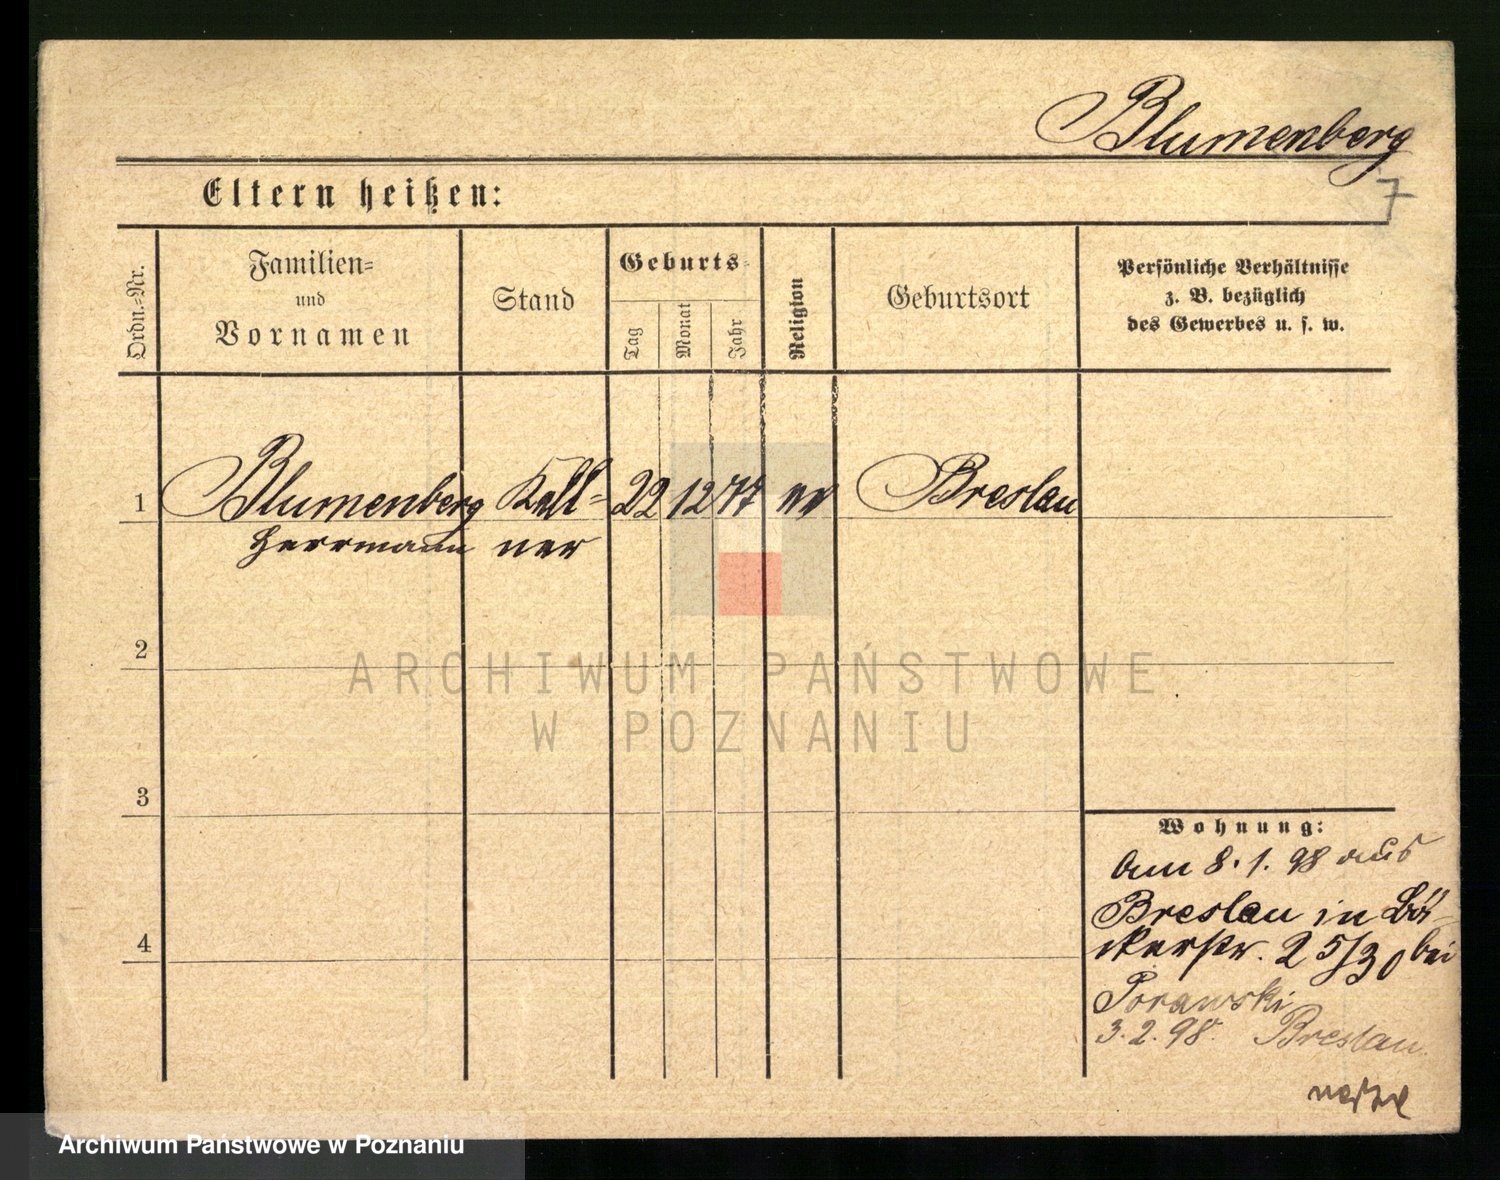 Blumenberg
7
Eltern heißen:
Ordn.-Nr.
Familien-
und
Vornamen
Stand
Geburts-
Tag
Monat
Jahr
Religion
Geburtsort
Persönliche Verhältnisse
z. B. bezüglich
des Gewerbes u. s. w.
1
Blumenberg
Herrmann
Kell-
ner
22
12
77
ev
Breslau
2
3
4
ARCHIWUM PAŃSTWOWE
W POZNANIU
Wohnung:
Am 8. 1. 98 aus
Breslau in Bä-
ckerstr. 25/30 bei
Porawski
3. 2. 98. Breslau.
Archiwum Państwowe w Poznaniu